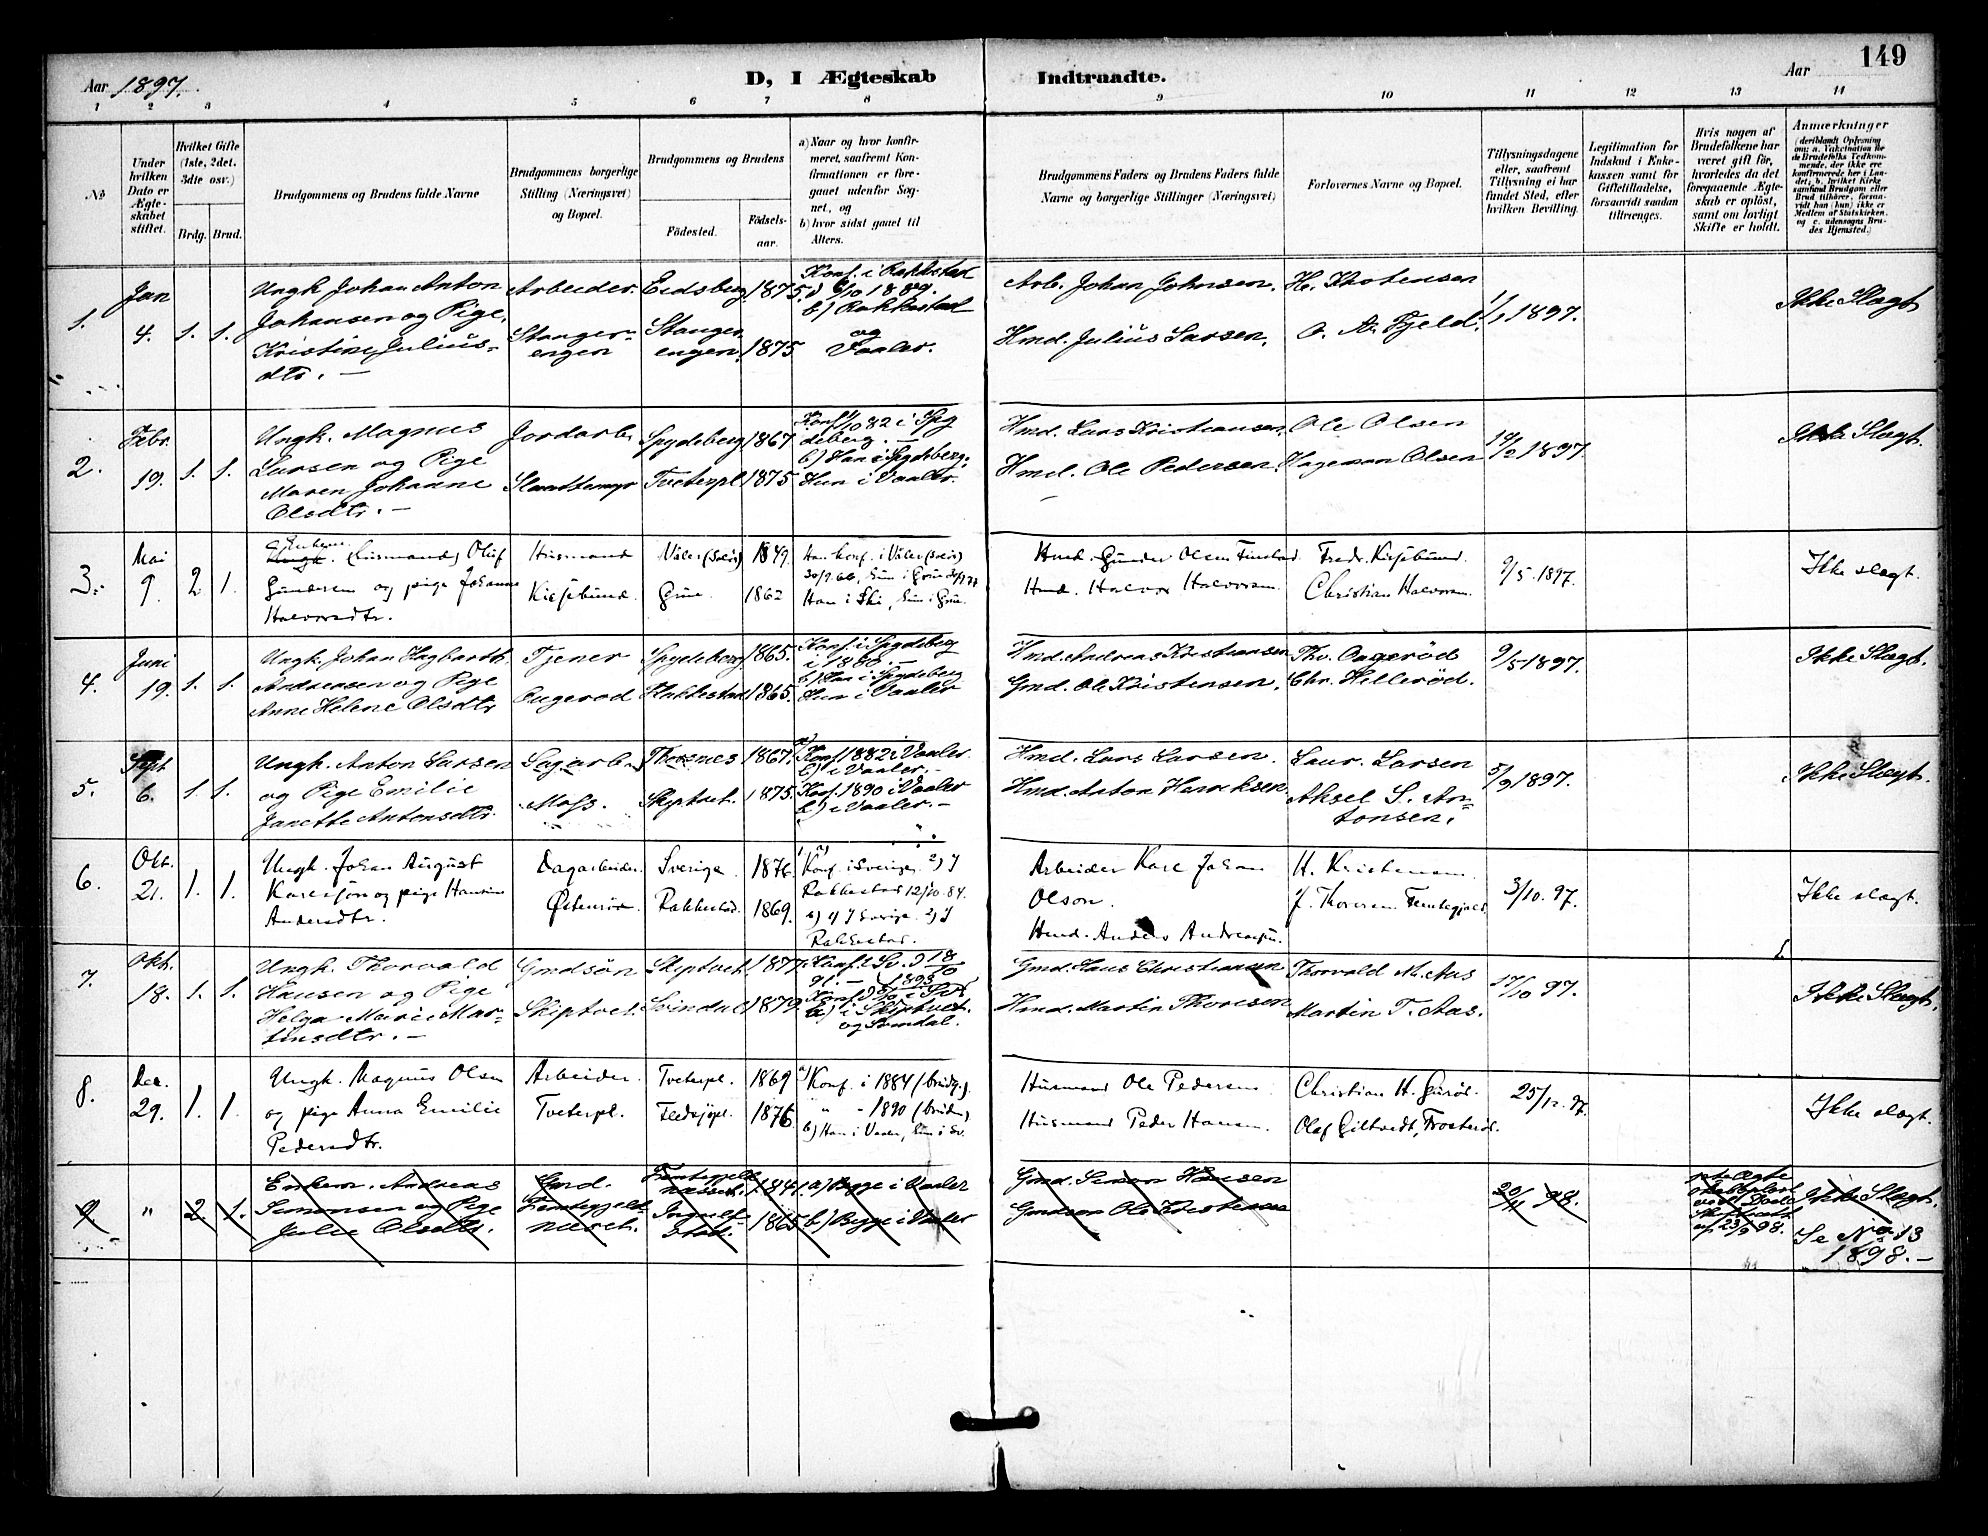 149
Aar 1897.
D, I Ægteskab Indtraadte.
Aar
1 2 3 4 5 6 7 8 9 10 11 12 13 14
No
Under hvilken Dato er Ægteskabet stiftet.
Hvilket Gifte (1ste, 2det, 3die osv.)
Brdg. Brud.
Brudgommens og Brudens fulde Navne
Brudgommens borgerlige Stilling (Næringsvei) og Bopæl.
Brudgommens og Brudens
Fødested.
Fødselsaar.
a) Naar og hvor konfirmeret, saafremt Konfirmationen er foregaaet udenfor Sognet, og
b) hvor sidst gaaet til Alters.
Brudgommens Faders og Brudens Faders fulde Navne og borgerlige Stillinger (Næringsvei)
Forlovernes Navne og Bopæl.
Tillysningsdagene eller, saafremt Tillysning ei har fundet Sted, efter hvilken Bevilling.
Legitimation for Indskud i Enkekassen samt for Giftetilladelse, forsaavidt saadan tiltrænges.
Hvis nogen af Brudefolkene har været gift før, hvorledes da det foregaaende Ægteskab er opløst, samt om lovligt Skifte er holdt.
Anmærkninger
1. Jan 4. 1. 1.
Ungk. Johan Anton
Johansen og Pige
Kristine Julius-
dtr. –
Arbeider.
Stanger-
engen
Eidsberg 1875.
Stanger-
engen. 1875
Konf. i Rakkestad
6/10 1889.
b) Rakkestad
og
Vaaler.
Arb. Johan Johnsen.
Hmd. Julius Larsen.
O. A. Fjeld.
1/1 1897.
Ikke Slægt
2. Febr. 19. 1. 1.
Ungk. Magnus
Larsen og Pige
Maren Johanne
Olsdtr. –
Jordarb.
Spydeberg 1867
Tveterpl 1875
Konf 1/10 82 i Spy
deberg. –
b) Han i Spydeberg.
Hun i Vaaler.
Hmd. Lars Kristiansen.
Hmd. Ole Pedersen
Ole Olsen
Hageman Olsen
14/2 1897.
Ikke Slægt.
3. Mai 9. 2 1.
Enkem.
Ungk. (husmand) Oluf
Gundersen og pige Johanne
Halvorsdtr.
Husmand
Kirsebund.
Våler (Solør) 1849.
Grue 1862
Han konf. i Våler (Solør)
30/9.66, hun i Grue
Han i Ski, hun i Grue.
Husd. Gunder Olsen Finstad
Husd. Halvor Halvorsen.
Fredr. Kirsebund.
Christian Halvorsen.
9/5. 1897.
Ikke slægt.
4. Juni 19. 1. 1.
Ungk. Johan Hagbarth
Andreasen og Pige
Anne Helene Olsdtr
Tjener
Augerød
Spydeberg 1865.
Rakkestad 1865.
Konf. i Spydeberg
i 1880. –
b) Han i Spydeberg
Hun i Vaaler
Hmd. Andreas Kristiansen
Gmd. Ole Kristensen.
Tho. Augerød
Chr. Hellerød.
9/5 1897.
Ikke Slægt.
5. Sept 6. 1. 1.
Ungk. Anton Larsen
og Pige Emilie
Janette Antonsdtr.
Sagarb.
Moss.
Thorsnes 1867.
Skiptvet. 1875.
a) Konf 1882 i Vaaler.
b) i Vaaler. –
Konf. 1890 i Vaaler
b) i Vaaler. –
Hmd. Lars Larsen.
Hmd. Anton Henriksen
Laur. Larsen
Aksel S. An-
tonsen.
5/9 1897.
Ikke Slægt.
6. Okt. 21. 1. 1.
Ungk. Johan August
Karlsson og pige Hansine
Andersdtr.
Dagarbeider.
Østenrød.
Sverige 1876.
Rakkestad. 1869.
a) Konf. i Sverige. 2) I
Rakkestad 12/10. 84.
b) 1) I Sverige. 2) I
Rakkestad.
Arbeider Karl Johan
Olson.
Husd. Anders Andreassen.
H. Kristensen.
3/10. 97.
Ikke slægt.
7. Okt. 18. 1. 1.
Ungk. Thorvald
Hansen og Pige
Helga Marie Mar-
tinsdtr. –
Gmdsøn
Skiptvet.
Skiptvet 1877.
Svindal 1879.
a) Konf. i Sv. d 18/10
91. – (1893
b) i Skiptvet.
og Svindal.
Gmd. Hans Christiansen
Hmd. Martin Thoresen
Thorvald M. Aas
Martin T. Aas.
17/10 97.
Ikke Slægt.
8. Dec. 29. 1. 1.
Ungk. Magnus Olsen
og pige Anna Emilie
Pedersdtr.
Arbeider.
Tveterpl.
Tveterpl. 1869
Fledsjøpl. 1876
a) Konf. i 1884 (brudg.).
" - 1890 (bruden)
b) Han i Vaaler, hun i Sv.
Husmand Ole Pedersen
Husmand Peder Hansen.
Christian H. Gurød.
Olaf Giltvedt, Frosterød.
25/12. 97.
Ikke slægt.
9 " 2 1.
Enkem. Andreas
Simonsen og Pige
Julie Olsdtr.
Gmd.
1841.
1865
a) Begge i Vaaler
b) Begge i Vaaler
Gmd. Simon Hansen
Gmdsøn Ole Kristensen
20/11 98.
23/9 98.
Ikke Slægt.
Se No 13
1898. –